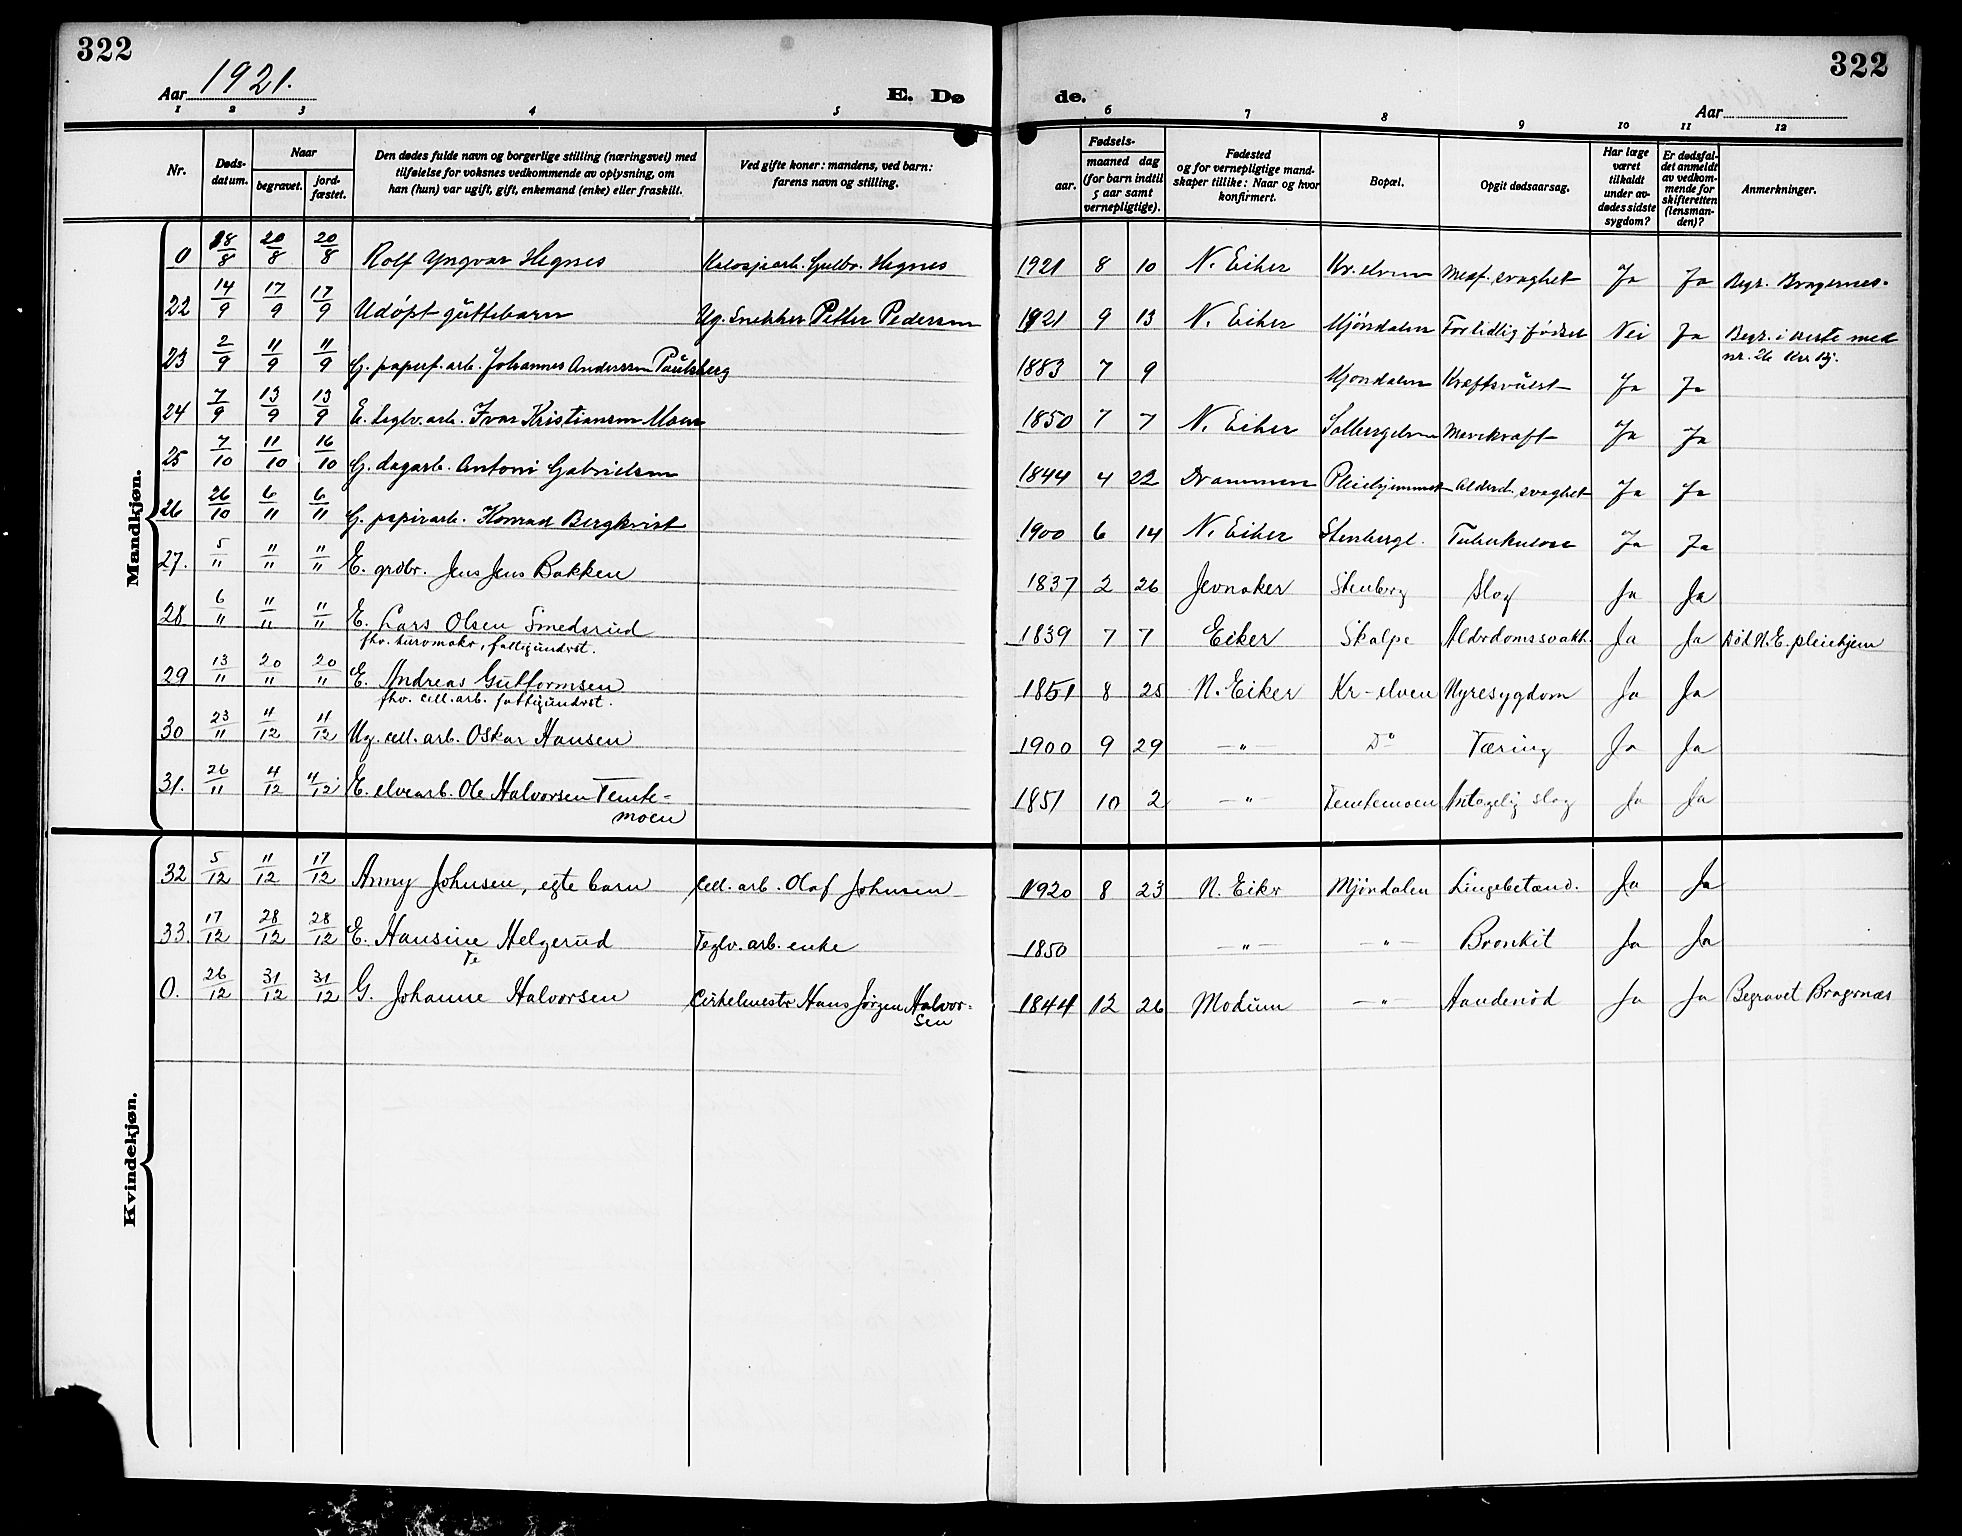 322
322
Aar 1921.
E. Dø
de.
Aar
1 2 3 4 5 6 7 8 9 10 11 12
Nr.
Døds-
datum.
Naar
begravet.
jord-
fæstet.
Den dødes fulde navn og borgerlige stilling (næringsvei) med
tilføielse for voksnes vedkommende av oplysning, om
han (hun) var ugift, gift, enkemand (enke) eller fraskilt.
Ved gifte koner: mandens, ved barn:
farens navn og stilling.
Fødsels-
aar.
maaned dag
(for barn indtil
5 aar samt
vernepligtige).
Fødested
og for vernepligtige mand-
skaper tillike: Naar og hvor
konfirmert.
Bopæl.
Opgit dødsaarsag.
Har læge
været
tilkaldt
under av-
dødes sidste
sygdom?
Er dødsfal-
det anmeldt
av vedkom-
mende for
skifteretten
(lensman-
den)?
Anmerkninger.
Mandkjøn.
0 18/8 20/8 20/8 Rolf Yngvar Hegnes Gulbr. Hegnes 1921 8 10 N. Eiker Kr. elven Medf. svaghet Ja Ja Begr. Bragernes.
22 14/9 17/9 17/9 Udøpt guttebarn Ug. Snekker Petter Pedersen 1921 9 13 N. Eiker Mjøndalen For tidlig fødsel Nei Ja Begr. i kiste med
nr. 26
23 2/9 11/9 11/9 G. papirf. arb. Johannes Anderssen Paulsberg 1883 7 9 Mjøndalen Kræftsvulst Ja Ja
24 7/9 13/9 13/9 E. teglv. arb. Ivar Kristiansen Moen 1850 7 7 N. Eiker Solbergelven Mavekræft Ja Ja
25 7/10 11/10 16/10 G. dagarb. Antoni Gabrielsen 1844 4 22 Drammen Pleiehjemmet Alderd. svaghet Ja Ja
26 26/10 6/11 6/11 G. papirarb. Konrad Bergkvist 1900 6 14 N. Eiker Stenbergl. Tuberkulose Ja Ja
27. 5/11 11/11 11/11 E. grdbr. Jens Jens Bakken 1837 2 26 Jevnaker Stenberg Slag Ja Ja
28 6/11 11/11 11/11 E. Lars Olsen Smedsrud 1839 7 7 Eiker Skalpe Alderdomssvakh. Ja Ja Død N. E. pleiehjem
fhv. urmaker, fattigundrst.
29 13/11 20/11 20/11 E. Andreas Guttormsen 1851 8 25 N. Eiker Kr-elven Nyresygdom Ja Ja
fhv. cell. arb. fattigundrst.
30 23/11 4/12 4/12 Ug. cell. arb. Oskar Hansen 1900 9 29 —"— Do Tæring Ja Ja
31. 26/11 4/12 4/12 E. elvearb. Ole Halvorsen Temte- 1851 10 2 —"— Temtemoen Antagelig slag Ja Ja
moen
Kvindekjøn.
32 5/12 11/12 17/12 Anny Johnsen, egte barn Cell. arb. Olaf Johnsen 1920 8 23 N. Eiker Mjøndalen Lungebetænd. Ja Ja
33. 17/12 28/12 28/12 E. Hansine Helgerud Teglv. arb. enke 1850 —"— —"— Bronkit Ja Ja
0. 26/12 31/12 31/12 G. Johanne Halvorsen Cirkelmestr Hans Jørgen Halvor- 1844 12 26 Modum —"— Aandenød Ja Ja Begravet Bragernæs
sen